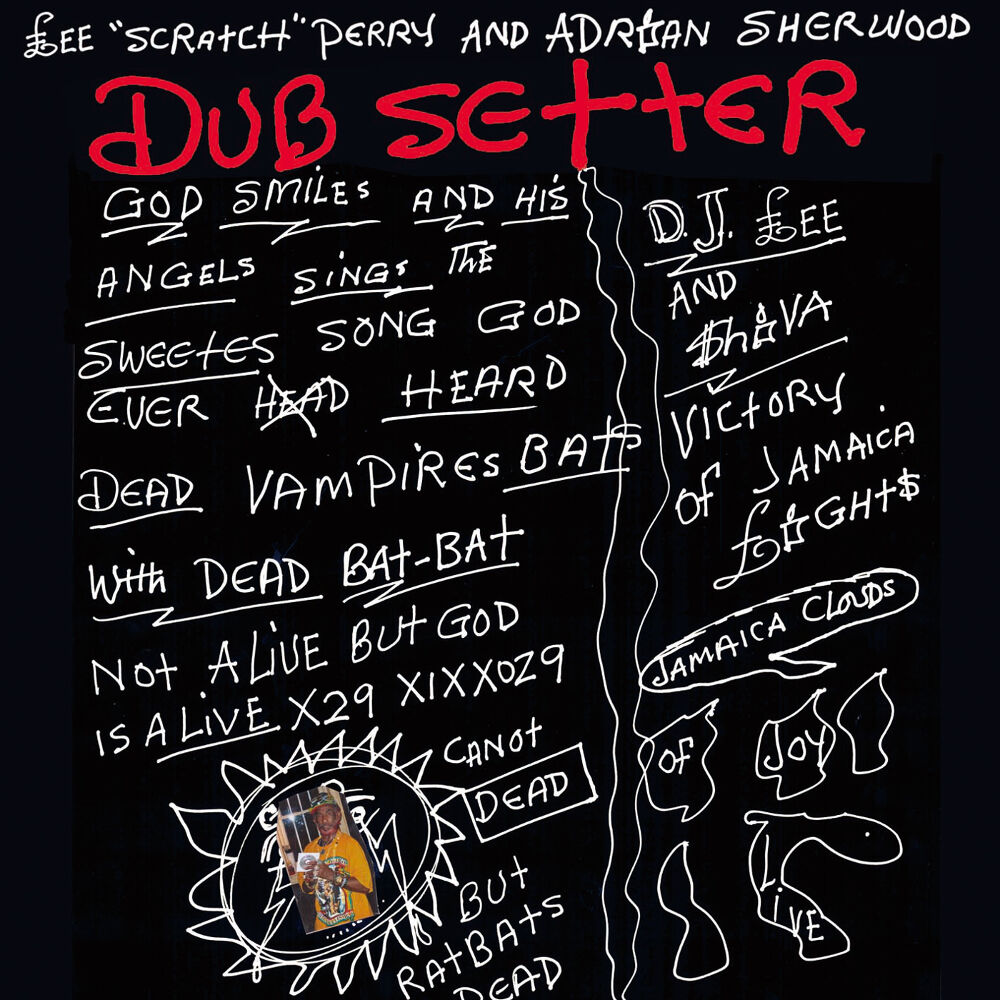 £EE "SCRAtCH" PERRY AND ADRIAN SHERWOOD
DUB SEttER
GOD SMiLES AND HiS
ANGELS SiNGS THE
SWEEtES SONG GOD
EVER HEAD HEARD
DEAD VAMPiRES BAtS
With DEAD BAt-BAt
Not ALiVE BUt GOD
IS ALiVE X29 XIXXOZ9
CANOt
DEAD
BUt
RAtBAtS
DEAD
D.J. £EE
AND
$hiVA
VICtORY
of JAMAICA
£iGHt$
JAMAICA CLOUDS
OF JOY
LiVE